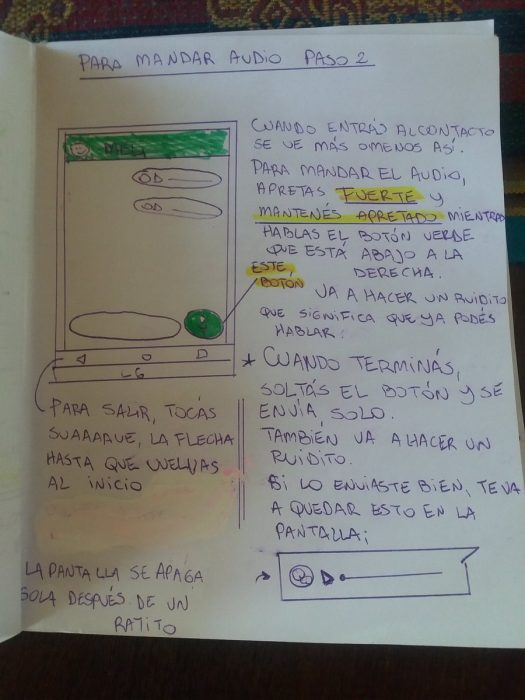 PARA MANDAR AUDIO PASO 2
MELI
LG
CUANDO ENTRÁS AL CONTACTO
SE VE MÁS OMENOS ASÍ.
PARA MANDAR EL AUDIO,
APRETAS FUERTE Y
MANTENÉS APRETADO MIENTRAS
HABLAS EL BOTÓN VERDE
QUE ESTÁ ABAJO A LA
DERECHA.
ESTE
BOTÓN
VA A HACER UN RUIDITO
QUE SIGNIFICA QUE YA PODÉS
HABLAR.
* CUANDO TERMINÁS,
SOLTÁS EL BOTÓN Y SE
ENVÍA SOLO.
TAMBIÉN VA A HACER UN
RUIDITO.
SI LO ENVIASTE BIEN, TE VA
A QUEDAR ESTO EN LA
PANTALLA;
PARA SALIR, TOCÁS
SUAAAAVE, LA FLECHA
HASTA QUE VUELVAS
AL INICIO
LA PANTALLA SE APAGA
SOLA DESPUÉS DE UN
RATITO